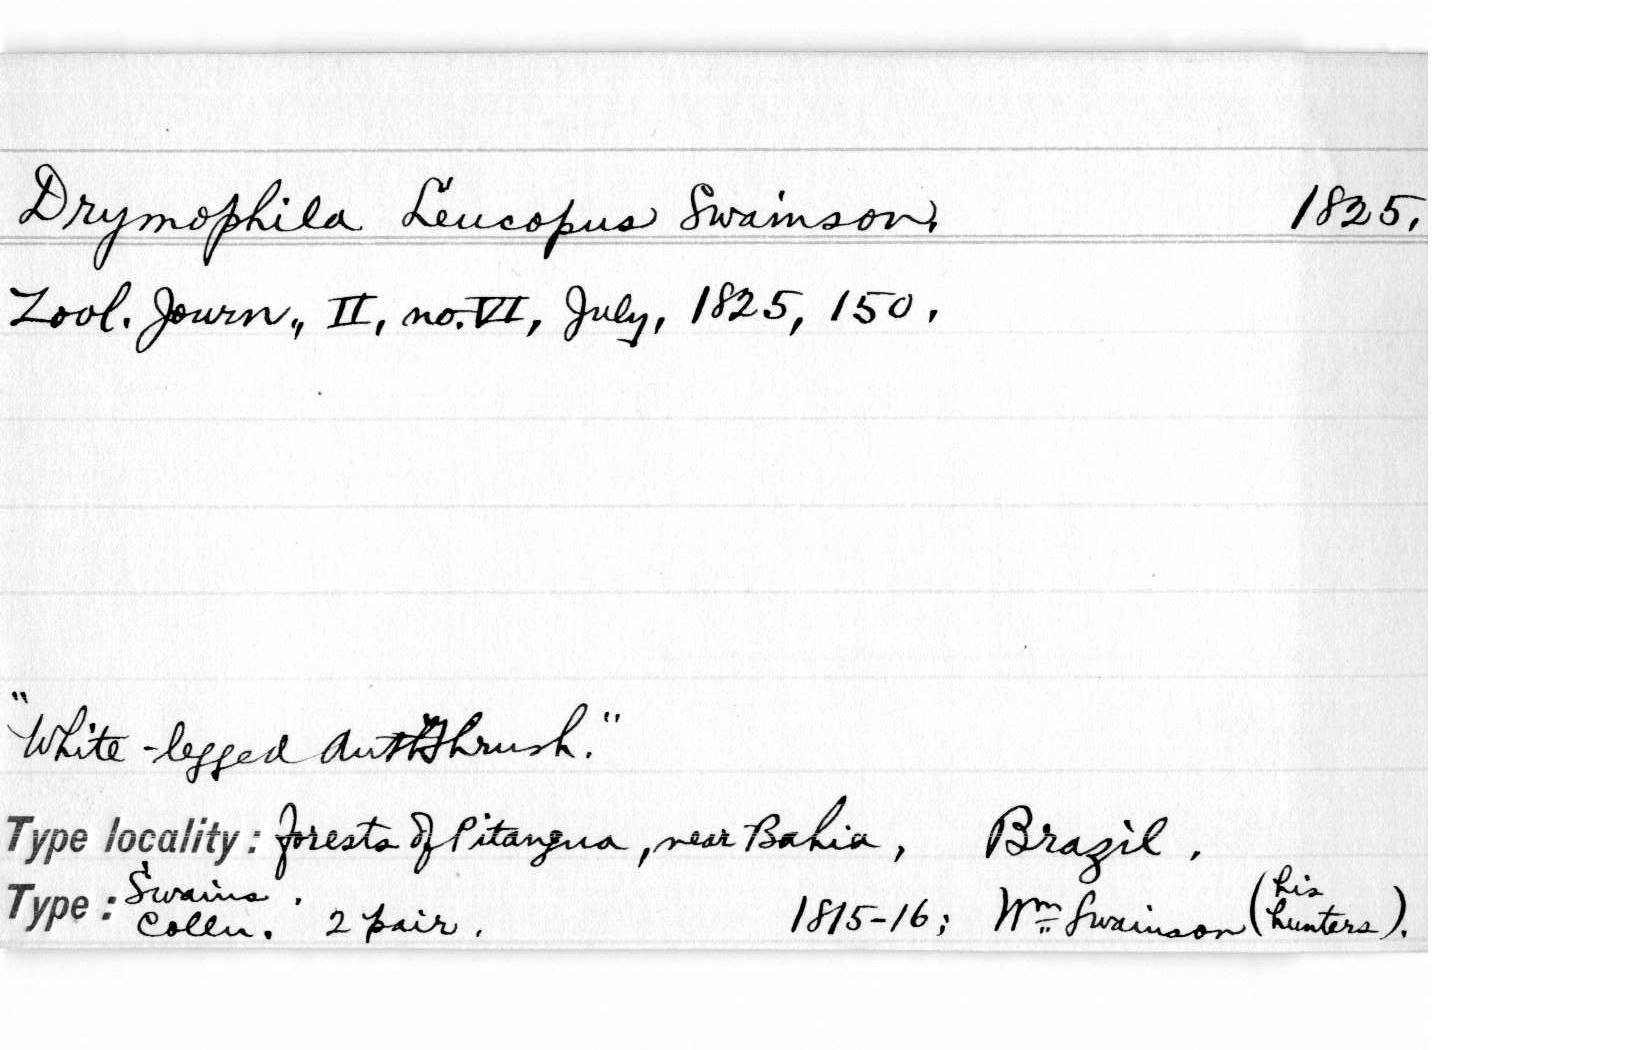 Drymophila Leucopus Swainson. 1825.
Zool. Journ., II, no. VI, July, 1825, 150.
"White-legged Ant Thrush."
Type locality: forests of Pitangua, near Bahia, Brazil.
Type: Swains. Colln. 2 pair. 1815-16; Wm Swainson (his hunters).